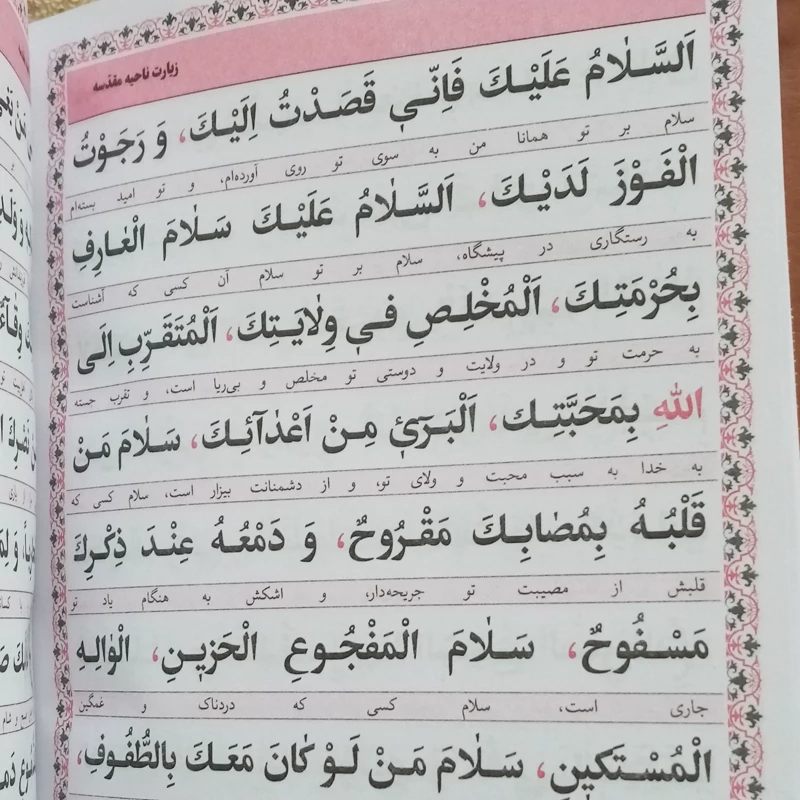 زیارت ناحیه مقدّسه
اَلسَّلٰامُ عَلَيْكَ فَاِنّي قَصَدْتُ اِلَيْكَ، وَ رَجَوْتُ
سلام بر تو همانا من به سوی تو روی آورده‌ام، و تو امید بسته‌ام
الْفَوْزَ لَدَيْكَ، اَلسَّلٰامُ عَلَيْكَ سَلٰامَ الْعٰارِفِ
به رستگاری در پیشگاه، سلام بر تو سلام آن کسی که آشناست
بِحُرْمَتِكَ، اَلْمُخْلِصِ في وِلٰايَتِكَ، اَلْمُتَقَرِّبِ اِلَى
به حرمت تو و در ولایت و دوستی تو مخلص و بی‌ریا است، و تقرب جسته
اللهِ بِمَحَبَّتِكَ، اَلْبَرَيٖ مِنْ اَعْدٰآئِكَ، سَلٰامَ مَنْ
به خدا به سبب محبت و ولای تو، و از دشمنانت بیزار است، سلام کسی که
قَلْبُهُ بِمُصٰابِكَ مَقْرُوحٌ، وَ دَمْعُهُ عِنْدَ ذِكْرِكَ
قلبش از مصیبت تو جریحه‌دار، و اشکش به هنگام یاد تو
مَسْفُوحٌ، سَلٰامَ الْمَفْجُوعِ الْحَزينِ، الْوٰالِهِ
جاری است، سلام کسی که دردناک و غمگین
الْمُسْتَكينِ، سَلٰامَ مَنْ لَوْ كٰانَ مَعَكَ بِالطُّفُوفِ،